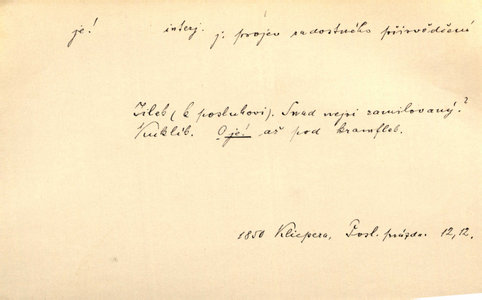 je! interj. j. projev radostného přisvědčení
Jileb (k posluhovi). Snad nejsi zamilovaný?
Kuklib. O je! až pod kramfleb.
1850 Klicpera, Posl. prázdn. 12, 12.